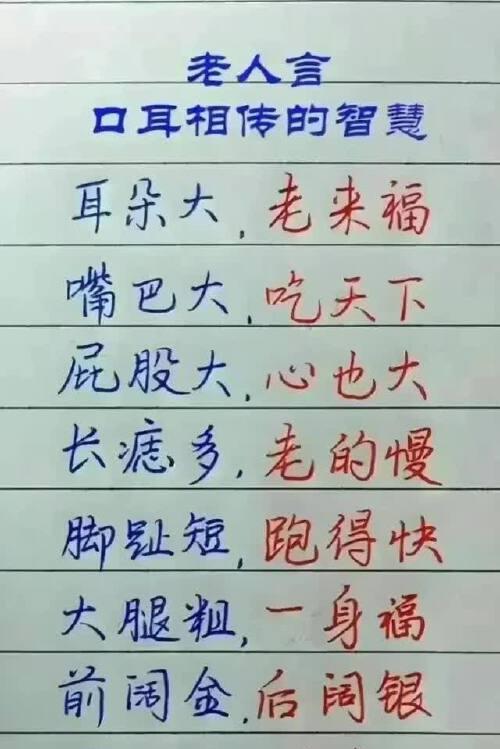 老人言
口耳相传的智慧
耳朵大,老来福
嘴巴大,吃天下
屁股大,心也大
长痣多,老的慢
脚趾短,跑得快
大腿粗,一身福
前阔金,后阔银